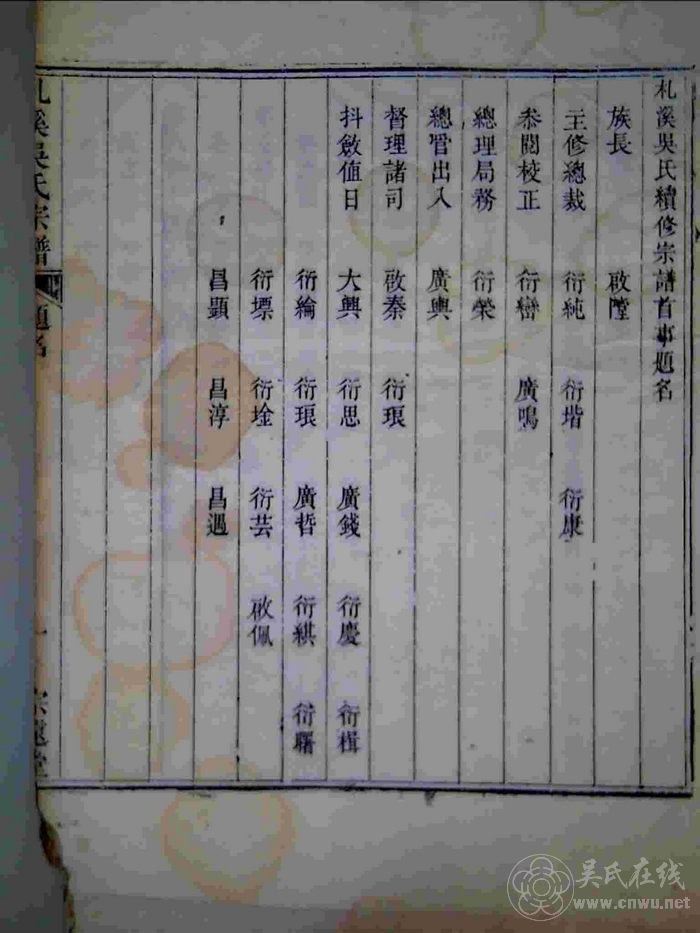 札溪吳氏續修宗譜首事題名
族長 啟瞠
主修總裁 衍純 衍堦 衍康
叅閱校正 衍巒 廣鳴
總理局務 衍榮
總管出入 廣興
督理諸司 啟秦 衍珢
抖斂值日 大興 衍思 廣錢 衍慶 衍楫
衍綸 衍琅 廣哲 衍綨 衍曙
衍墂 衍垒 衍芸 啟佩
昌顯 昌淳 昌遇
札溪吳氏宗譜 題名 一
吴氏在线
www.cnwu.net